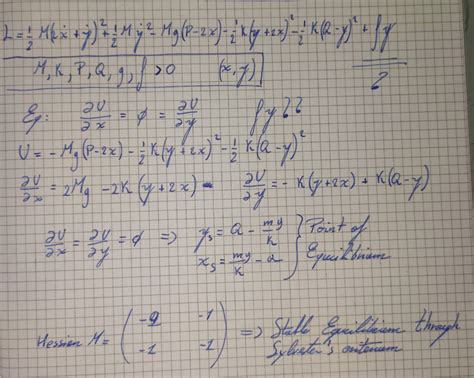 L = 1/2 M(2ẋ + ẏ)² + 1/2 Mẏ² - Mg(P-2x) - 1/2 K(y+2x)² - 1/2 K(Q-y)² + fy/2
M, K, P, Q, g, f > 0 (x, y)
Eq: ∂U/∂x = ϕ = ∂U/∂y fy??
U = - Mg(P-2x) - 1/2 K(y+2x)² - 1/2 K(Q-y)²
∂U/∂x = 2Mg - 2K(y+2x) - ∂U/∂y = - K(y+2x) + K(Q-y)
∂U/∂x = ∂U/∂y = ϕ => ys = Q - mg/k } Point of
xs = mg/k - Q } Equilibrium
Hessian H = ( -2 -1
-1 -1 ) => Stable Equilibrium through
Sylvester's criterium